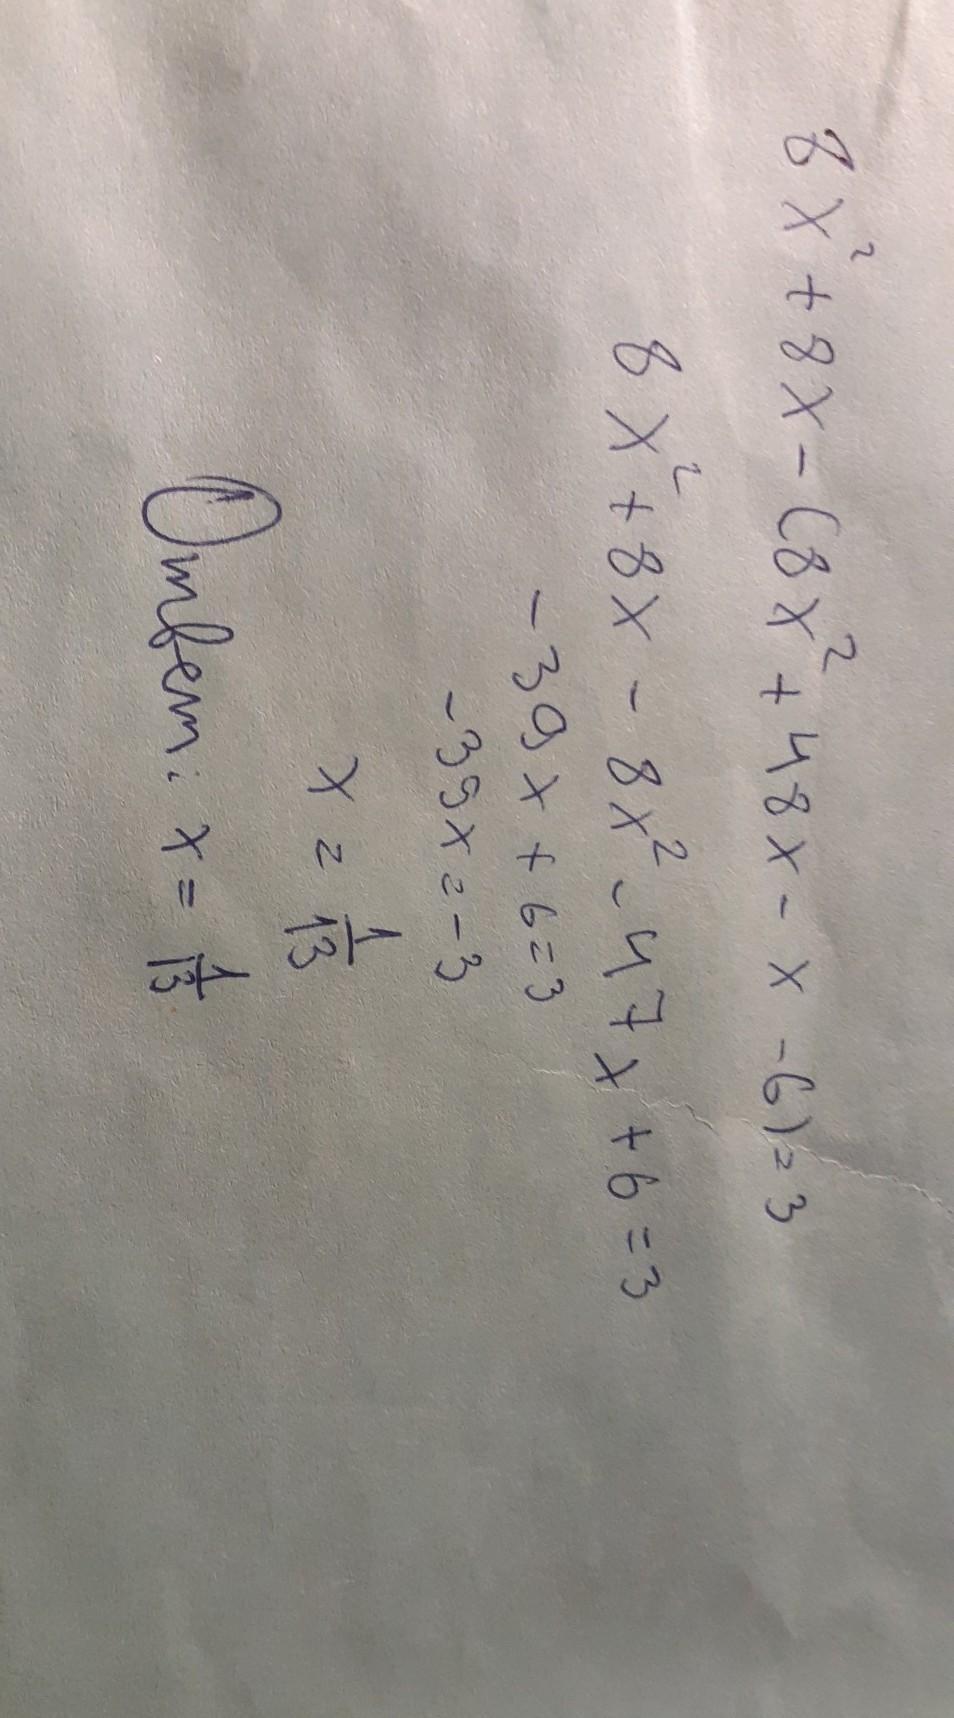 8x² + 8x - (8x² + 48x - x - 6) = 3
8x² + 8x - 8x² - 47x + 6 = 3
-39x + 6 = 3
-39x = -3
x = 1/13
Ответ: x = 1/13